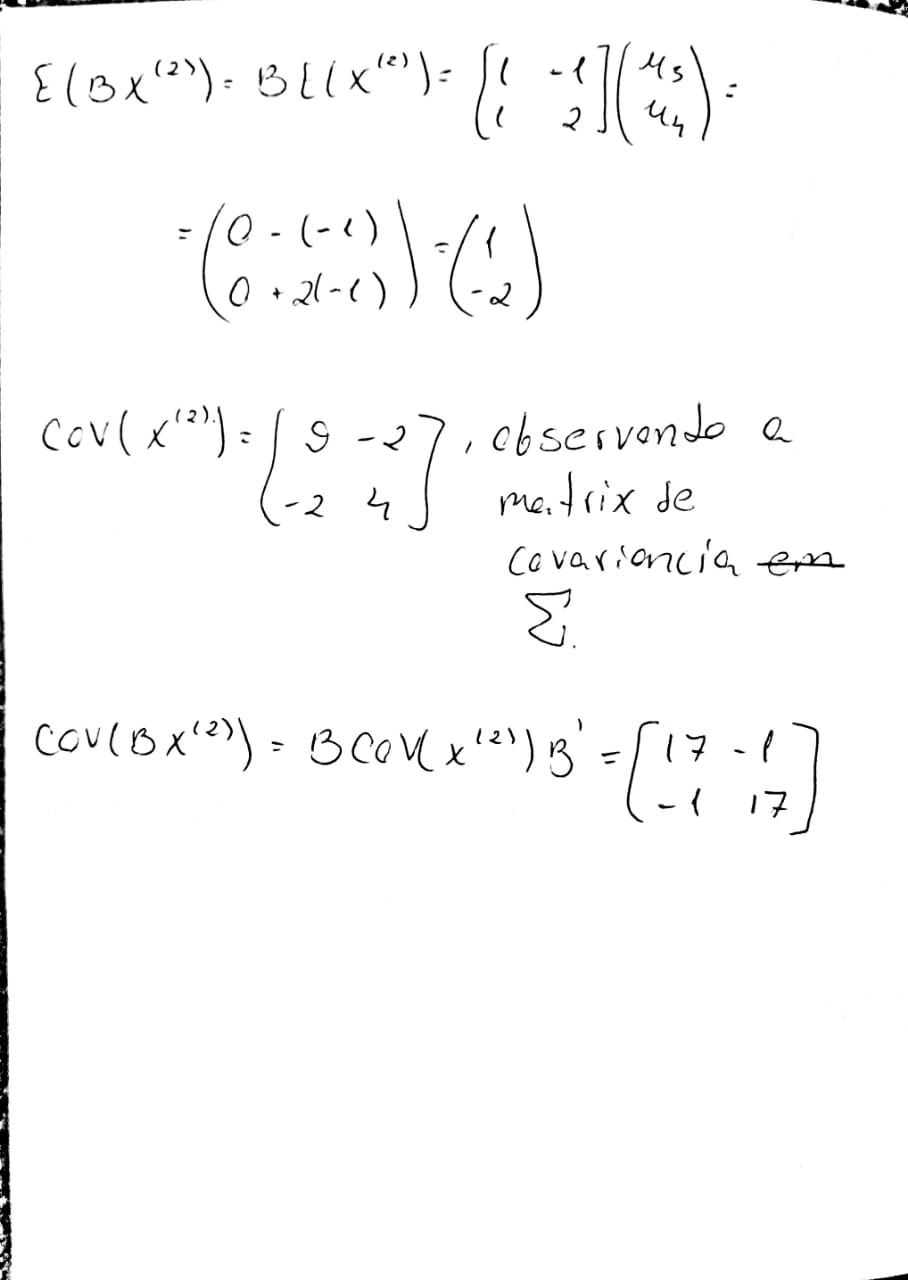 E(BX⁽²⁾) = BE(X⁽²⁾) = [1 -1; 1 2](μ₃; μ₄) =
= (0 - (-1); 0 + 2(-1)) = (1; -2)
COV(X⁽²⁾) = [9 -2; -2 4], observando a
matrix de
covariancia em
Σ.
COV(BX⁽²⁾) = B COV(X⁽²⁾)B' = [17 -1; -1 17]